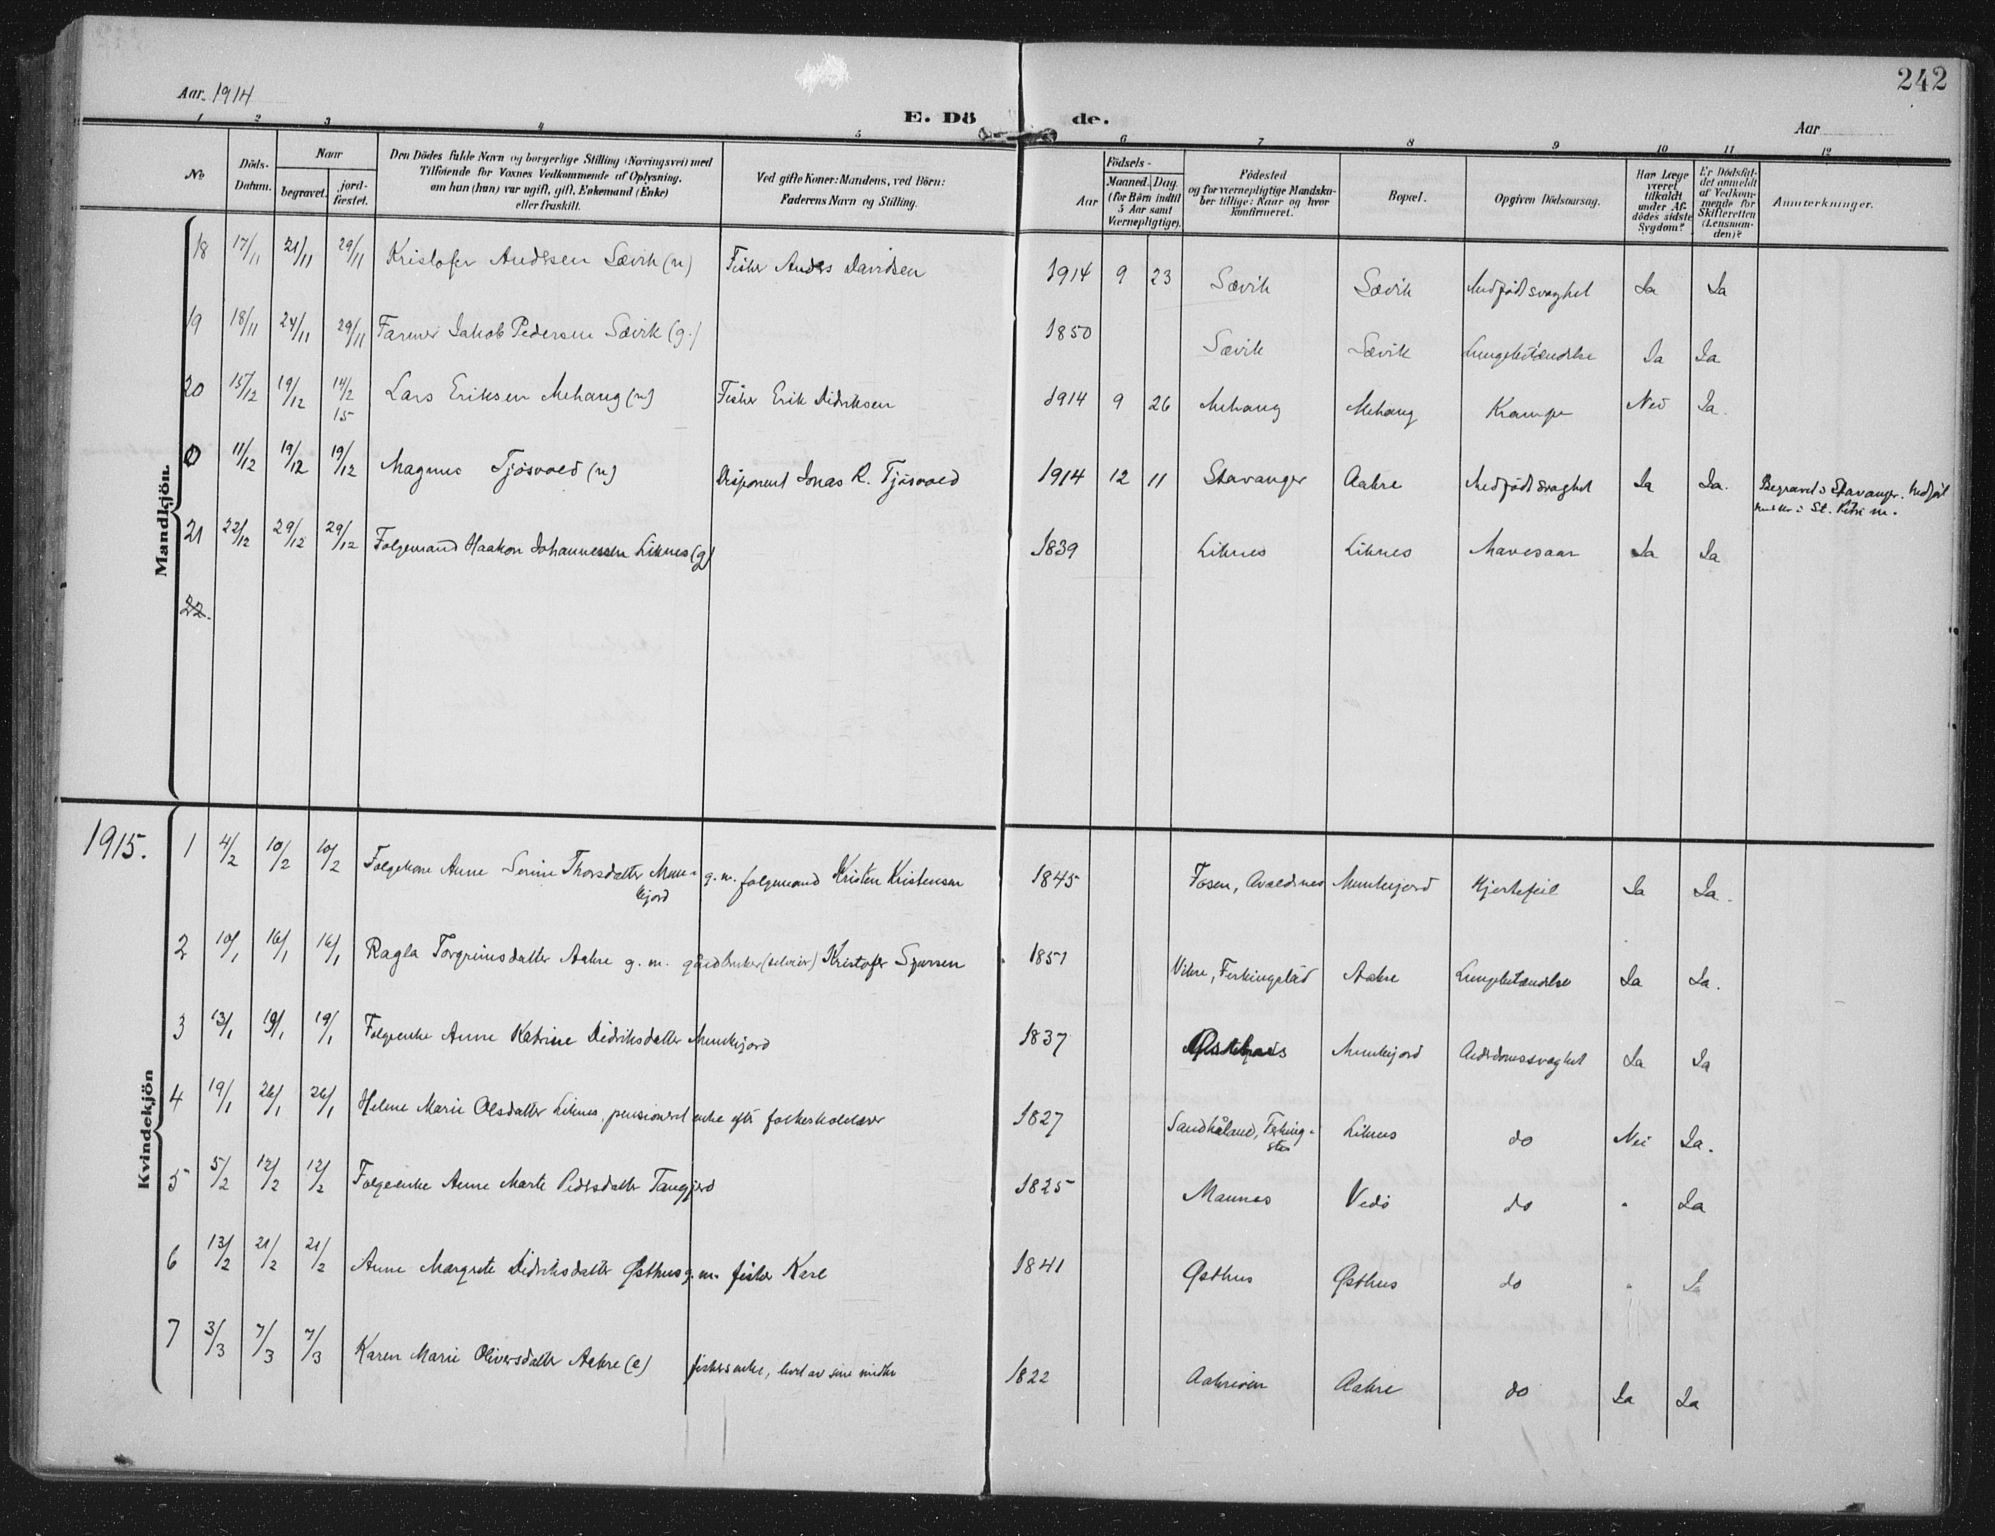 242
Aar 1914
E. Dö de.
Aar
1 2 3 4 5 6 7 8 9 10 11 12
No
Döds-Datum.
Naar
begravet.
jord-fæstet.
Den Dödes fulde Navn og borgerlige Stilling (Næringsvei) med
Tilföiende for Voxnes Vedkommende af Oplysning,
om han (hun) var ugift, gift, Enkemand (Enke)
eller fraskilt.
Ved gifte Koner: Mandens, ved Börn:
Faderens Navn og Stilling.
Födsels-
Aar
Maaned. Dag.
(for Börn indtil
5 Aar samt
Værnepligtige).
Födested
og for værnepligtige Mandska-
ber tillige: Naar og hvor
konfirmeret.
Bopæl.
Opgiven Dödsaarsag.
Har Læge
været
tilkaldt
under Af-
dödes sidste
Sygdom?
Er Dödsfal-
det anmeldt
af Vedkom-
mende for
Skifteretten
(Lensman-
den)?
Anmærkninger.
Mandkjön.
18 17/11 21/11 29/11 Kristofer Andersen Sævik (u) Fisker Anders Davidsen 1914 9 23 Sævik Sævik Medfødt svaghet Ja Ja
19 18/11 24/11 29/11 Farmer Jakob Pedersen Sævik (g.) 1850 Sævik Sævik Lungebetændelse Ja Ja
20 15/12 19/12 14/2 15 Lars Eriksen Mehaug (u) Fisker Erik Didriksen 1914 9 26 Mehaug Mehaug Krampe Nei Ja.
0 11/12 19/12 19/12 Magnus Tjøsvold (u) Disponent Jonas R. Tjøsvold 1914 12 11 Stavanger Aakre Medfødt svaghet Ja Ja. Begravet i Stavanger.
21 22/12 29/12 29/12 Folgemand Haakon Johannessen Liknes (g) 1839 Liknes Liknes Mavesaar Ja Ja
22.
1915.
Kvindekjön
1 4/2 10/2 10/2 Folgekone Anne Serine Thorsdatter Munkejord g. m. folgemand Kristen Kristensen 1845 Fosen, Avaldsnes Munkejord Hjertefeil Ja Ja.
2 10/1 16/1 16/1 Ragla Torgrimsdatter Aakre g. m. gårdbruker (selveier) Kristofer Sjursen 1851 Vikre, Ferkingstad Aakre Lungebetændelse Ja Ja.
3 13/1 19/1 19/1 Folgeenke Anne Katrine Didriksdatter Munkejord 1837 Munkejord Alderdomssvaghet Ja Ja
4 19/1 26/1 26/1 Helene Marie Olsdatter Liknes, pensioneret enke efter folkeskolelærer 1827 Sandhåland, Ferkingstad Liknes do Nei Ja.
5 5/2 12/2 12/2 Folgeenke Anne Marte Pedersdatter Tangjerd 1825 Mannes Vedö do " Ja
6 13/2 21/2 21/2 Anne Margrete Didriksdatter Østhus g. m. fisker Karl 1841 Østhus Østhus do " Ja
7 3/3 7/3 7/3 Karen Marie Oliversdatter Aakre (e) fiskerenke, levet av sine midler 1822 Aakreöen Aakre do Ja Ja